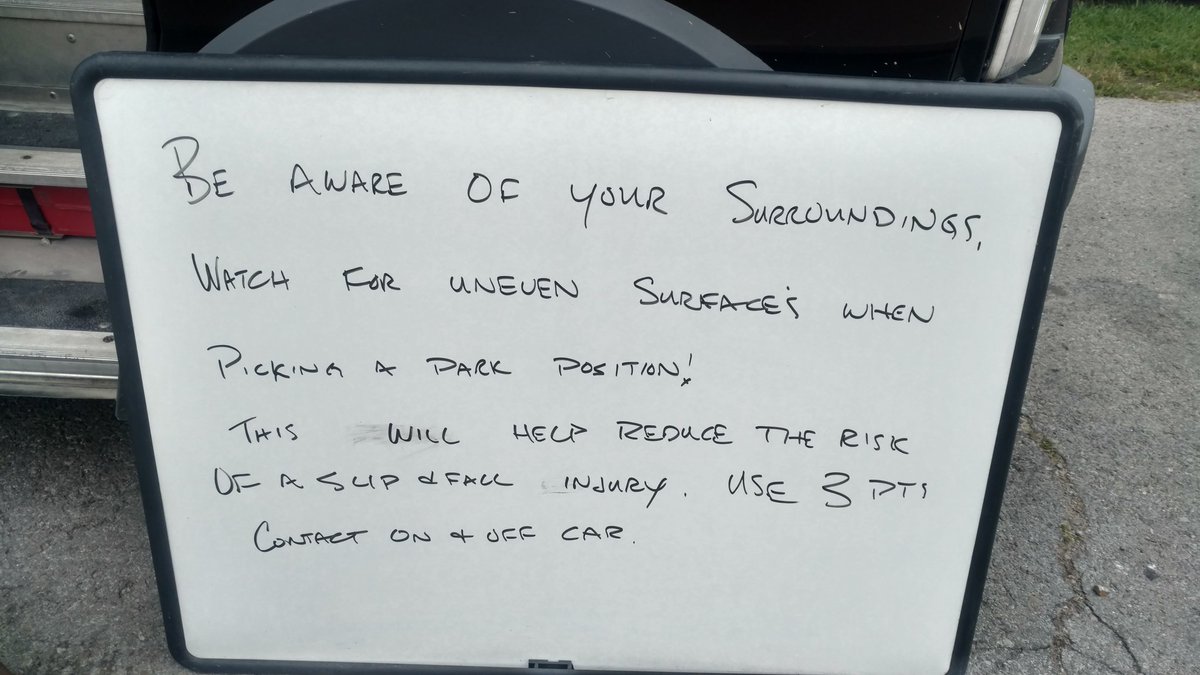 BE AWARE OF YOUR SURROUNDINGS,
WATCH FOR UNEVEN SURFACE'S WHEN
PICKING A PARK POSITION!
THIS WILL HELP REDUCE THE RISK
OF A SLIP & FALL INJURY. USE 3 PTS
CONTACT ON & OFF CAR.